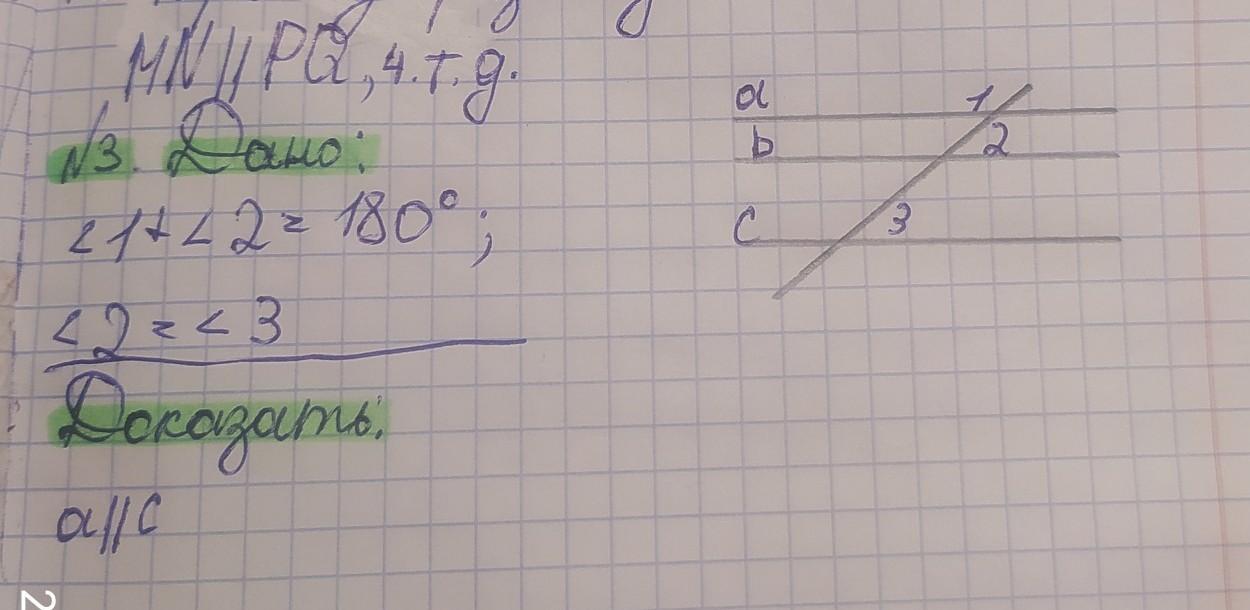 MN||PQ, ч.т.д.
N3. Дано:
<1+<2=180°;
<2=<3
Доказать:
a||c
a
1
b
2
c
3
2